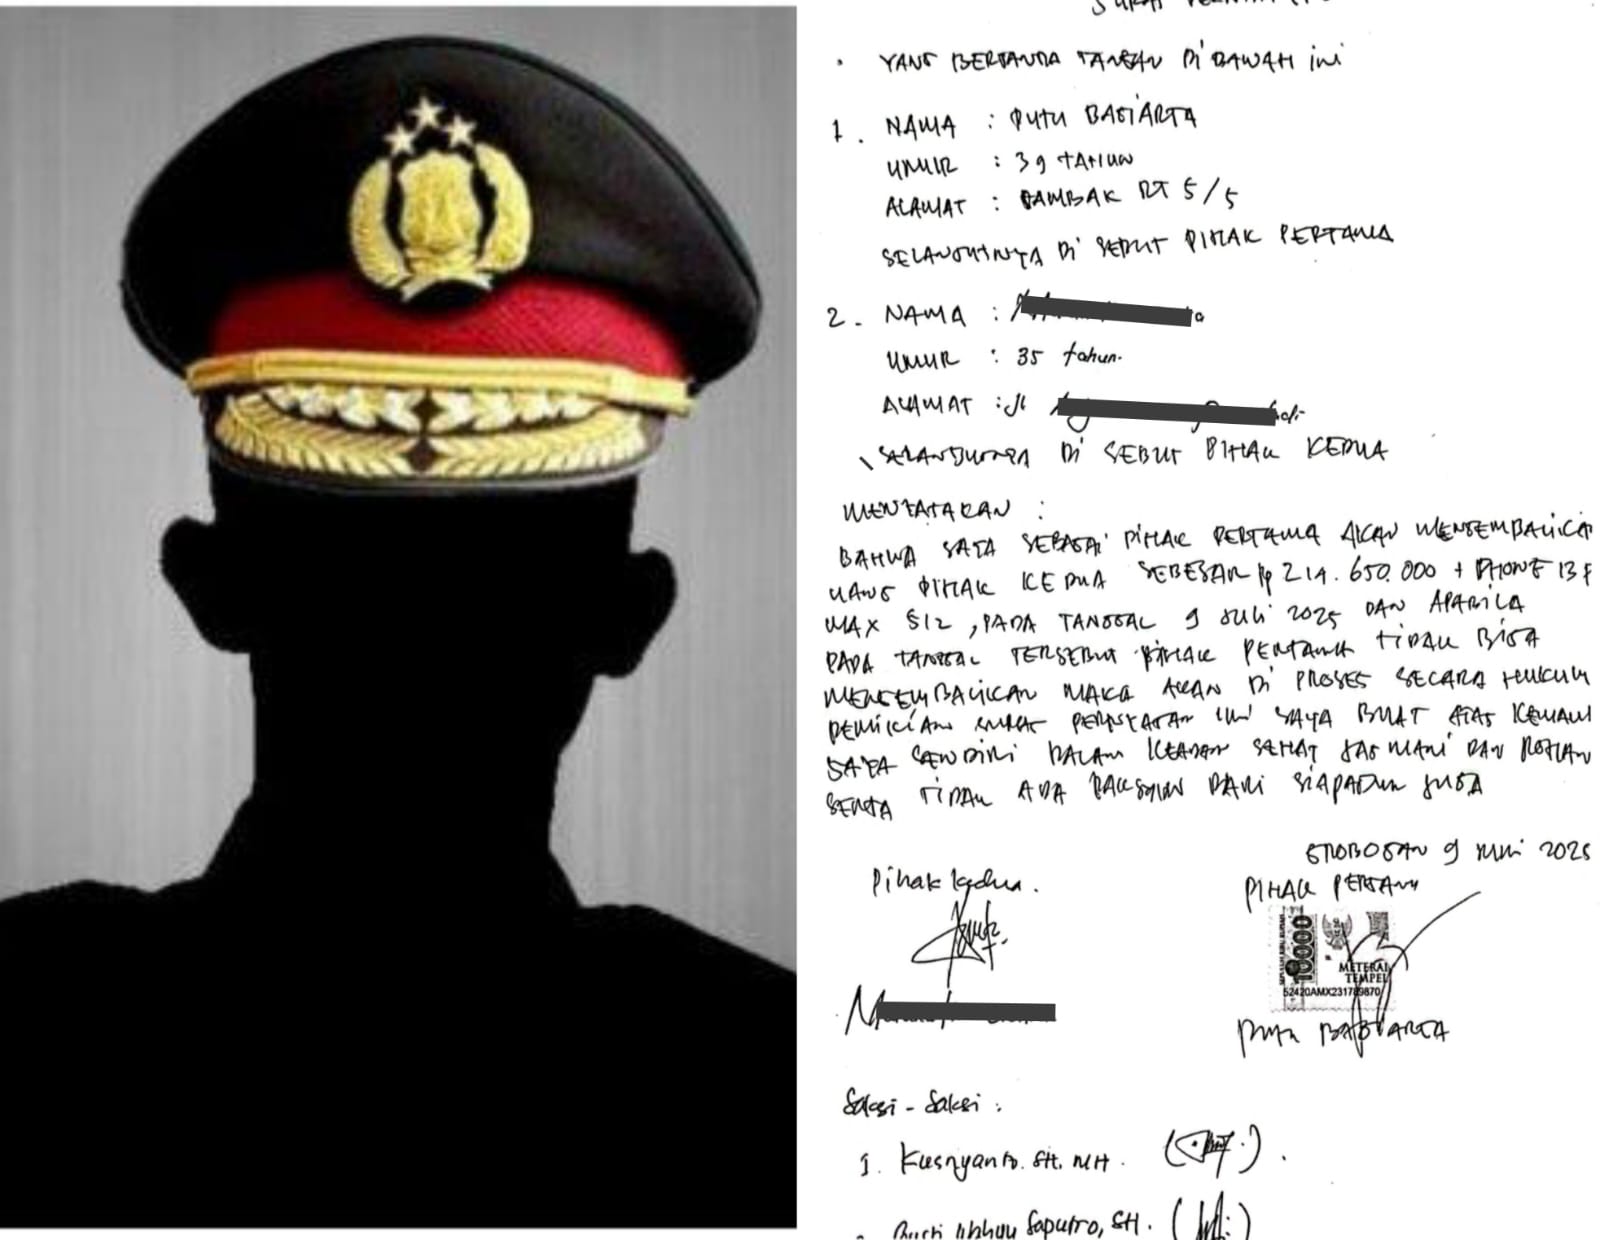 YANG BERTANDA TANGAN DI BAWAH ini
1. NAMA : PUTU BAGIARTA
UMUR : 39 TAHUN
ALAMAT : TAMBAK RT 5/5
SELANJUTNYA DI SEBUT PIHAK PERTAMA
2. NAMA :
UMUR : 35 tahun.
ALAMAT : Jl
SELANJUTNYA DI SEBUT PIHAK KEDUA
MENYATAKAN :
BAHWA SAYA SEBAGAI PIHAK PERTAMA AKAN MENGEMBALIKA
UANG PIHAK KEDUA SEBESAR Rp 214.650.000 + PHONE 13 P
MAX 512, PADA TANGGAL 9 JULI 2025 DAN APABILA
PADA TANGGAL TERSEBUT PIHAK PERTAMA TIDAK BISA
MENGEMBALIKAN MAKA AKAN DI PROSES SECARA HUKUM
DEMIKIAN SURAT PERNYATAAN INI SAYA BUAT ATAS KEMAUAN
SAYA SENDIRI DALAM KEADAAN SEHAT JASMANI DAN ROHANI
SERTA TIDAK ADA PAKSAAN DARI SIAPAPUN JUGA
GROBOGAN 9 JUNI 2025
Pihak kedua.
PIHAK PERTAMA
SEPULUH RIBU RUPIAH
10000
METERAI
TEMPEL
52420AMX231789870
PUTU BAGIARTA
Saksi - Saksi :
1. Kusriyanto. SH. MH.
Saputro, SH.